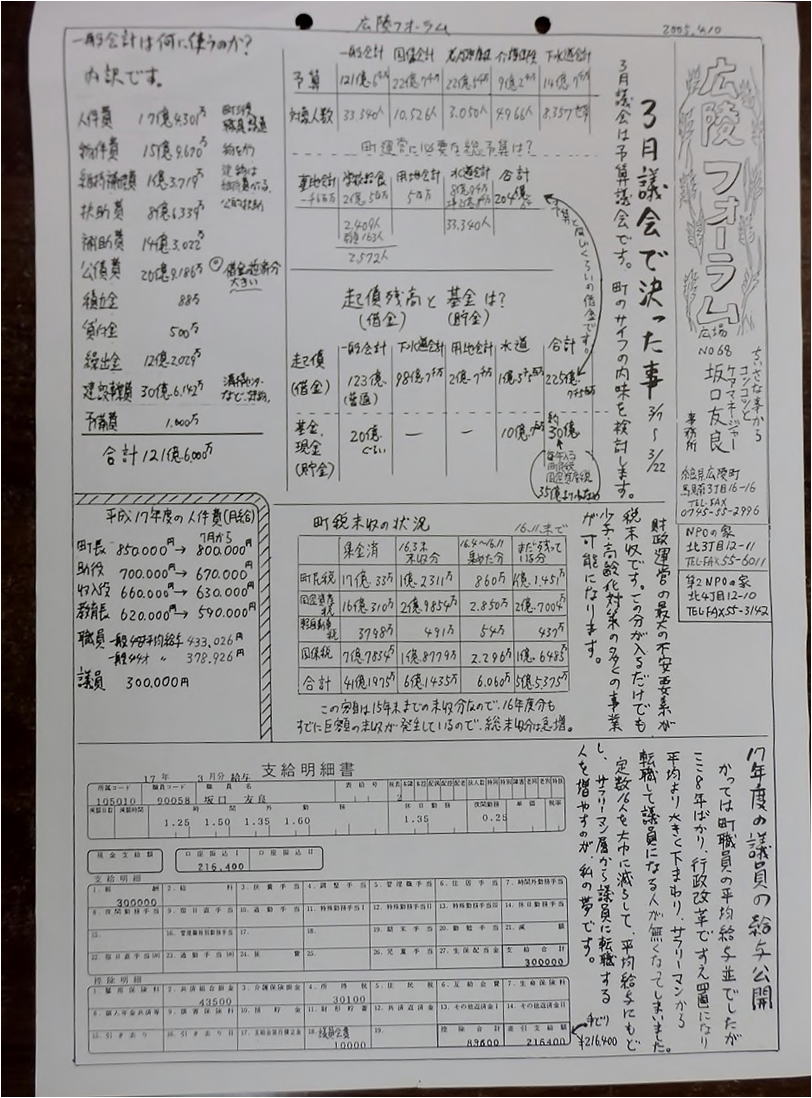 広陵フォーラム
2005.4.10
広陵フォーラム
広場
NO68
ちいさな事から
コツコツと
ケアマネージャー
坂口友良
事務所
北葛城郡広陵町
馬見南3丁目16-16
TEL・FAX
0745-55-2996
NPOの家
北3丁目12-11
TEL・FAX 55-6011
第2NPOの家
北4丁目12-10
TEL・FAX 55-3142
3月議会で決った事 3/7〜3/22
3月議会は予算議会です。町のサイフの内味を検討します。
一般会計 国保会計 老人保健 介護保険 下水道会計
予算 121億.6千万 22億7千万 22億5千万 9億2千万 14億7千万
対象人数 33.340人 10.526人 3.050人 4.966人 8.357世帯
町運営に必要な総予算は?
墓地会計 学校給食 用地会計 水道会計 合計
2億.5百万 5百万 204億
2.409人 33.340人
163人
2.572人
予算と同じくらいの借金です。
起債残高と基金は?
(借金) (貯金)
一般会計 下水道会計 用地会計 水道 合計
起債 123億. 98億.7千万 2億.7千万 1億.5千5百万 225億.
(借金) (普通)
基金、現金 20億 ー ー 10億 約30億
(貯金) ぐらい
毎年入る
町民税
固定資産税
35億よりも少なめ
一般会計は何に使うのか?
内訳です。
人件費 17億.4.301万 町3役 職員、議員
物件費 15億.9.670万 物を買う
維持補修費 1億.3.719万
扶助費 8億.6.339万
補助費 14億.3.022万
公債費 20億.9.186万 ◎借金返済分 大きい
積立金 88万
貸付金 500万
繰出金 12億.2.029万
建設事業費 30億.6.142万 清掃センターなど
予備費 1.000万
合計 121億.6.000万
平成17年度の人件費(月給)
7月から
町長 850.000円→800.000円
助役 700.000円→670.000円
収入役 660.000円→630.000円
教育長 620.000円→590.000円
職員 一般 平均給与 433,026円
一般 〃 378.926円
議員 300.000円
町税未収の状況
16.11.末で
課金済 16.3末 未収分 16.4〜16.11 集めた分 まだ残っている分
町民税 17億.33万 1億.2311万 860万 1億.1.451万
固定資産税 16億.310万 2億.9854万 2.850万 2億.7004万
軽自動車税 3798万 491万 54万 437万
国保税 7億.7834万 1億.8779万 2.296万 1億.6485万
合計 41億.1975万 6億.1435万 6.060万 5億.5375万
この項目は15年末までの未収分なので、16年度分も
すでに巨額の未収が発生しているので、総未収分は急増。
財政運営の最大の不安要素が
税未収です。この分が入るだけでも
少子・高齢化対策の多くの事業
が可能になります。
17年度の議員の給与公開
かつては町職員の平均給与並でしたが
ここ8年ばかり、行政改革ですえ置になり
平均より大きく下まわり、サラリーマンから
転職して議員になる人が無くなってしまいました。
定数16人を大巾に減らして、平均給与にもど
し、サラリーマン層から議員に転職する
人を増やすのが、私の夢です。
手どり
¥216,400
17年 3月分 給与 支給明細書
所属コード 職員コード 職員名
105010 90058 坂口 友良 2
時間外勤務 休日勤務 夜間勤務 単価 税率
1.25 1.50 1.35 1.60 1.35 0.25
現金支給額 口座振込1 口座振込2
216,400
支給明細
1.報酬 2.給料 3.扶養手当 4.調整手当 5.管理職手当 6.住居手当 7.時間外勤務手当
300000
8.夜間勤務手当 9.宿日直手当 10.通勤手当 11.特殊勤務手当1 12.特殊勤務手当2 13.特殊勤務手当3 14.休日勤務手当
15. 16.管理職特別勤務手当 17. 18. 19.期末手当 20.勤勉手当 21.減額
24.旅費 25. 26.児童手当 支給合計
300000
控除明細
1.雇用保険料 2.共済組合掛金 3.介護保険掛金 4.所得税 5.住民税 6.互助会費 7.生命保険料
43500 30100
8.個人年金共済等 9.損害保険料 10.預貯金 11.財形貯蓄 12.共済返済金 13.その他返済金1 14.その他返済金2
15.引き去り 16.引き去り 18.議員会費 19. 控除合計 差引支給額
10000 83600 216400